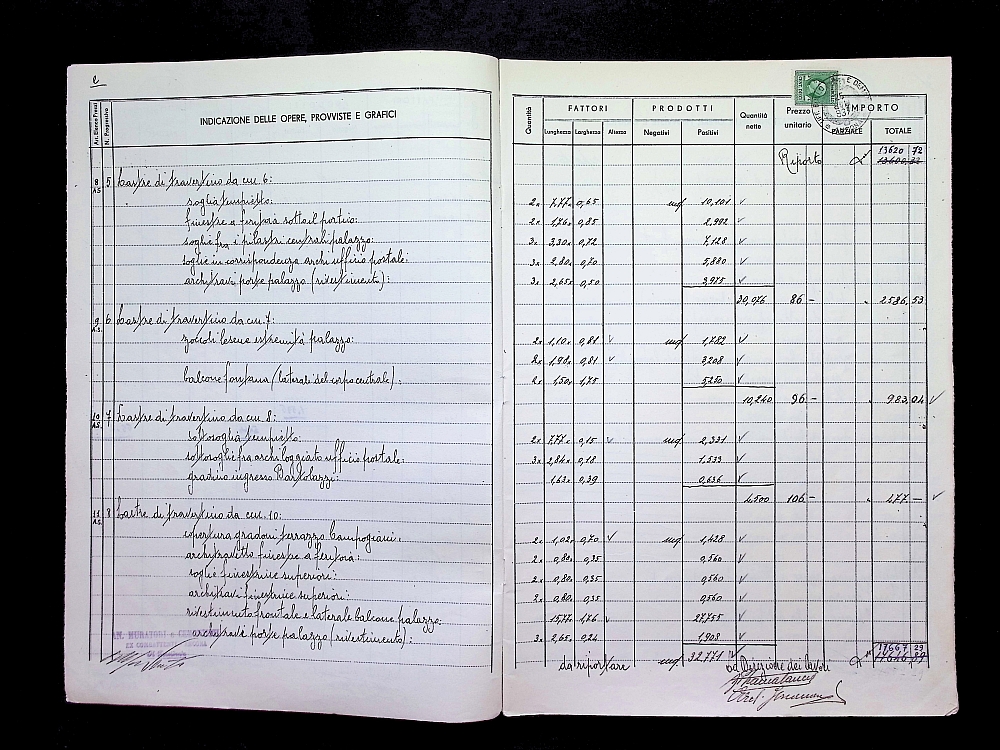 2
Art. Elenco Prezzi
N. Progressivo
INDICAZIONE DELLE OPERE, PROVVISTE E GRAFICI
8 A.S. 5 Lastre di travertino da cm. 6:
soglia tempietto:
finestre a feritoia sotto il portico:
soglie fra i pilastri centrali palazzo:
soglie in corrispondenza archi ufficio postale:
architravi porte palazzo (rivestimento):
9 A.S. 6 Lastre di travertino da cm. 7:
zoccoli lesene estremità palazzo:
balcone fontana (laterali del corpo centrale):
10 A.S. 7 Lastre di travertino da cm. 8:
sottosoglia tempietto:
sottosoglie fra archi loggiato ufficio postale:
gradino ingresso Bartolazzi:
11 A.S. 8 Lastre di travertino da cm. 10:
copertura gradoni terrazzo Campogiani:
architravetto finestre a feritoia:
soglie finestrine superiori:
architravi finestrine superiori:
rivestimento frontale e laterale balcone palazzo:
architrave porte palazzo (rivestimento):
AN. MURATORI e CEMENTISTI
EX COMBATTENTI
Quantità
FATTORI
Lunghezza Larghezza Altezza
PRODOTTI
Negativi Positivi
Quantità nette
Prezzo unitario
IMPORTO
PARZIALE TOTALE
Riporto 13620 72
13600,33
2x 7,77x 0,65 mq 10,101
2x 1,76x 0,85 2,992
3x 3,30x 0,72 7,128
3x 2,80x 0,70 5,880
3x 2,65x 0,50 3,975
30,076 86 — 2586,53
2x 1,10x 0,81 mq 1,782
2x 1,98x 0,81 3,208
2x 1,50x 1,75 5,250
10,240 96 — 983,04
2x 7,77x 0,15 mq 2,331
3x 2,84x 0,18 1,533
1,63x 0,39 0,636
4,500 106 — 477 —
2x 1,02x 0,70 mq 1,428
2x 0,80x 0,35 0,560
2x 0,80x 0,35 0,560
2x 0,80x 0,35 0,560
15,77x 1,76 27,755
3x 2,65x 0,24 1,908
da riportare mq 32,771
17667 29
La Direzione dei lavori